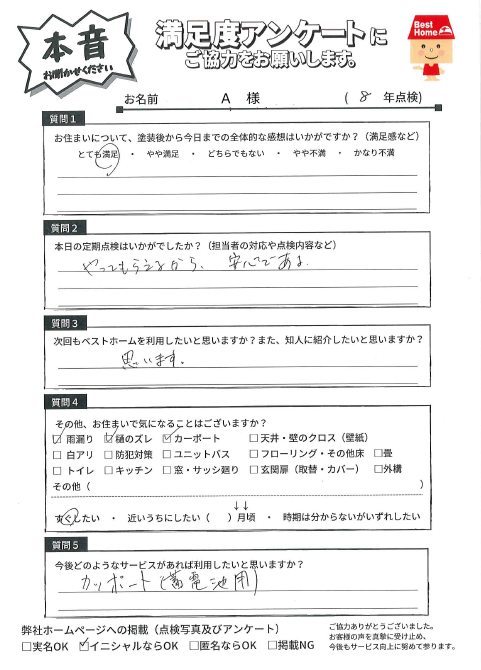 本音
お聞かせください
満足度アンケートに
ご協力をお願いします。
Best Home
お名前 A 様 ( 8 年点検)
質問1
お住まいについて、塗装後から今日までの全体的な感想はいかがですか?(満足感など)
とても満足 ・ やや満足 ・ どちらでもない ・ やや不満 ・ かなり不満
質問2
本日の定期点検はいかがでしたか?(担当者の対応や点検内容など)
やってもらえるから、安心である。
質問3
次回もベストホームを利用したいと思いますか?また、知人に紹介したいと思いますか?
思います。
質問4
その他、お住まいで気になることはございますか?
☑雨漏り ☑樋のズレ ☑カーポート □天井・壁のクロス(壁紙)
□白アリ □防犯対策 □ユニットバス □フローリング・その他床 □畳
□トイレ □キッチン □窓・サッシ廻り □玄関扉(取替・カバー) □外構
その他( )
↓↓
すぐしたい ・ 近いうちにしたい( )月頃 ・ 時期は分からないがいずれしたい
質問5
今後どのようなサービスがあれば利用したいと思いますか?
カーポート(蓄電池用)
弊社ホームページへの掲載(点検写真及びアンケート)
□実名OK ☑イニシャルならOK □匿名ならOK □掲載NG
ご協力ありがとうございました。
お客様の声を真摯に受け止め、
今後もサービス向上に努めて参ります。